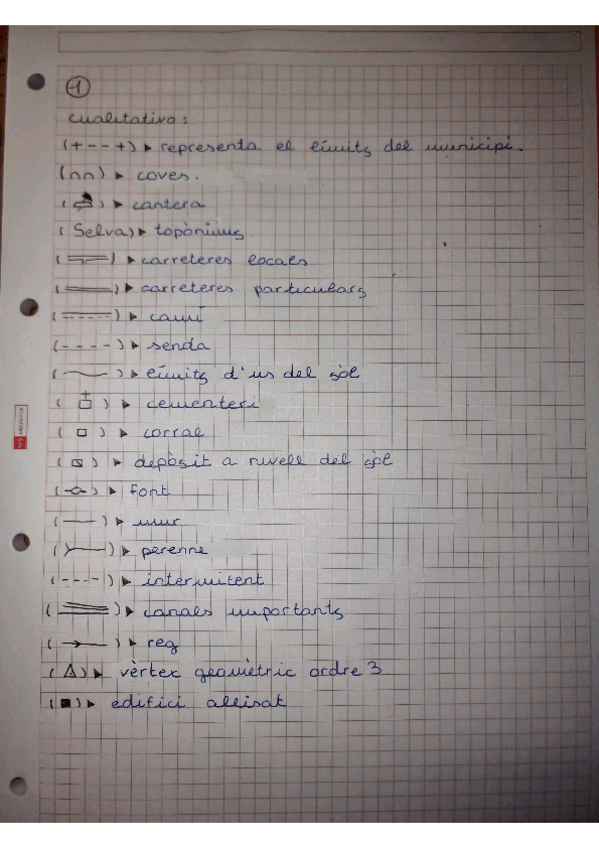 1
cualitativo:
(+--+) ▸ representa el límits del municipi.
(∩∩) ▸ coves.
▸ cantera
(Selva) ▸ topònims
▸ carreteres locals
▸ carreteres particulars
▸ camí
(----) ▸ senda
▸ límits d'us del sòl
▸ cementeri
▸ corral
▸ depòsit a nivell del sòl
▸ font
▸ mur
▸ perenne
(----) ▸ intermitent
▸ canals importants
▸ reg
▸ vèrtex geomètric ordre 3
▸ edifici allisat